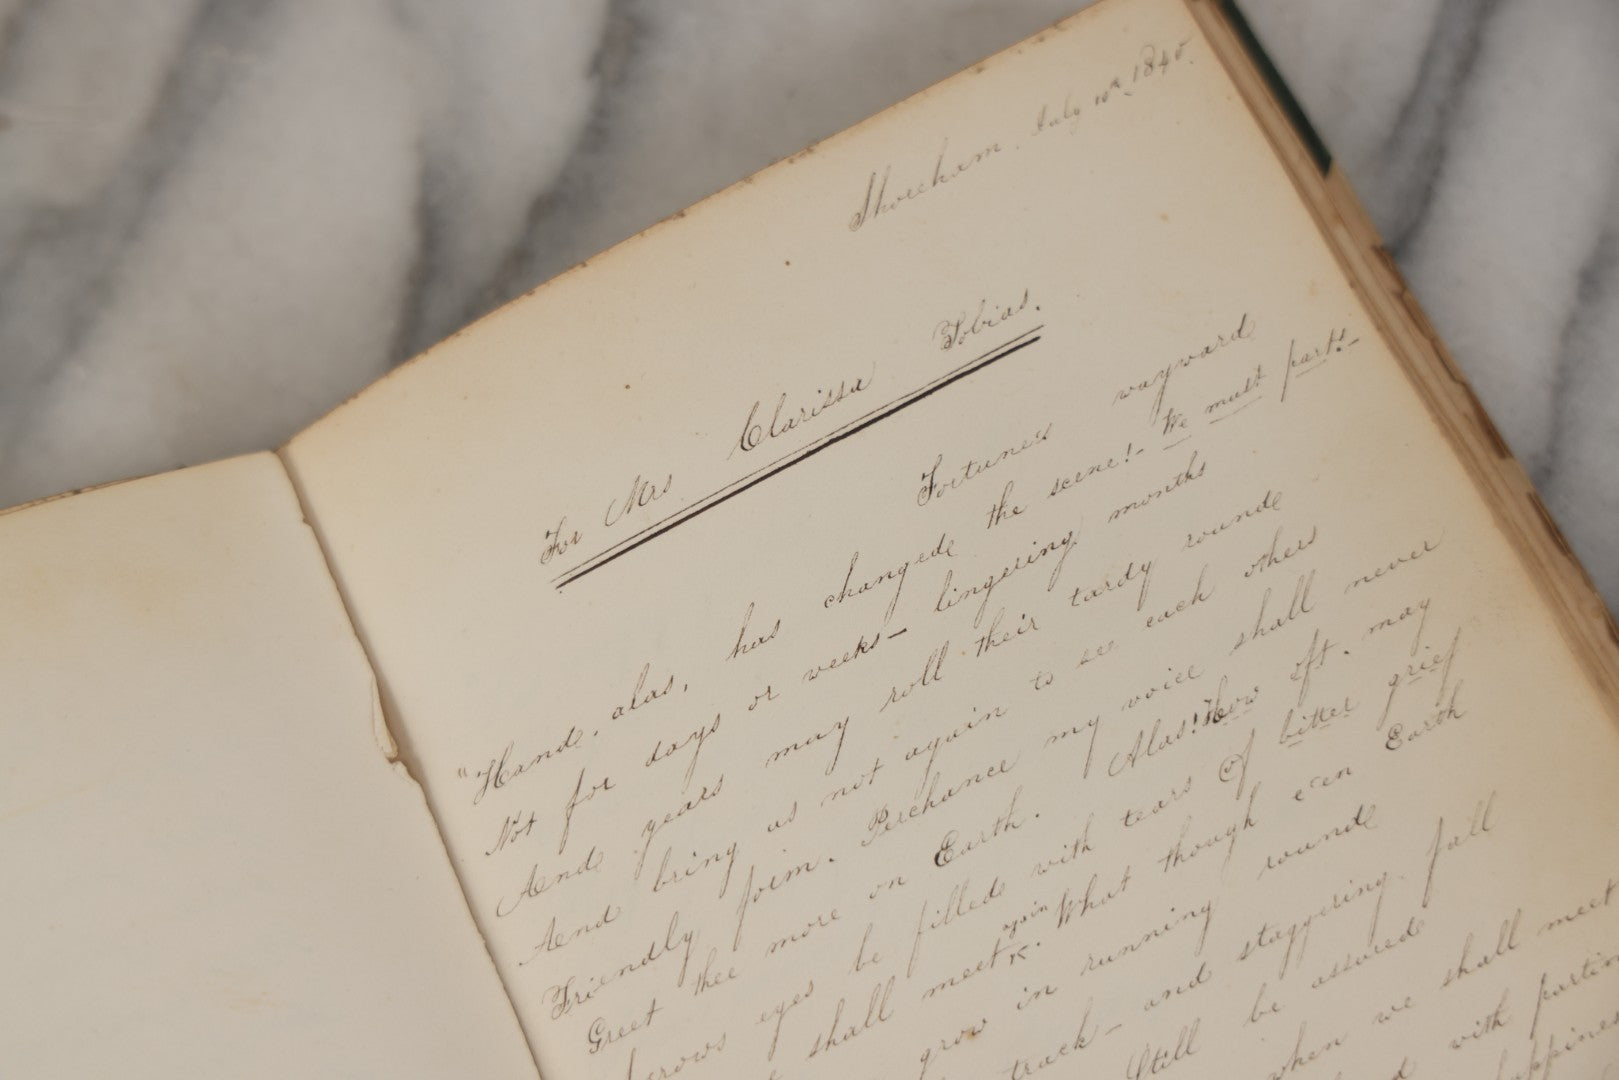 Shoreham, July 10th, 1845.
For Mrs Clarissa Tobias.
Fortunes wayward
"Hand, alas, has changed the scene!- We must part!-
Not for days or weeks- lingering months
And years may roll their tardy round
And bring us not again to see each others
Friendly form. Perchance my voice shall never
Greet thee more on Earth. Alas! How oft, may
sorrows eyes be filled with tears of bitter grief
shall meet again. What though e'en Earth
grow in running round
track- and staggering fall
Still be assured
when we shall meet
with